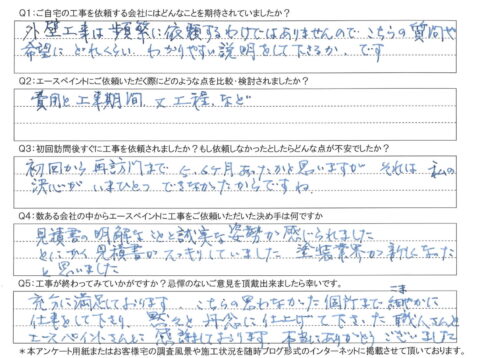 Q1：ご自宅の工事を依頼する会社にはどんなことを期待されていましたか？
外壁工事は頻繁に依頼するわけではありませんので、こちらの質問や
希望に どれくらい わかりやすい説明をして下さるか、です
Q2：エースペイントにご依頼いただく際にどのような点を比較・検討されましたか？
費用と工事期間、又工程、など
Q3：初回訪問後すぐに工事を依頼されましたか？もし依頼しなかったとしたらどんな点が不安でしたか？
初回から再訪問まで 5、6ヶ月あったかと思いますが それは 私の
決心が いまひとつ できなかったからですね
Q4：数ある会社の中からエースペイントに工事をご依頼いただいた決め手は何ですか
見積書の明解なことと誠実な姿勢が感じられました
とにかく見積書がスッキリしていました 塗装業界が新しくなった
と思いました
Q5：工事が終わってみていかがですか？忌憚のないご意見を頂戴出来ましたら幸いです。
充分に満足しております、こちらの思わなかった個所まで細やかに
仕事をして下さり、黙々と丹念に仕上げて下さった職人さんと
エースペイントさんに感謝しております、本当にありがとうございました
＊本アンケート用紙またはお客様宅の調査風景や施工状況を随時ブログ形式のインターネットに掲載させて頂いております。